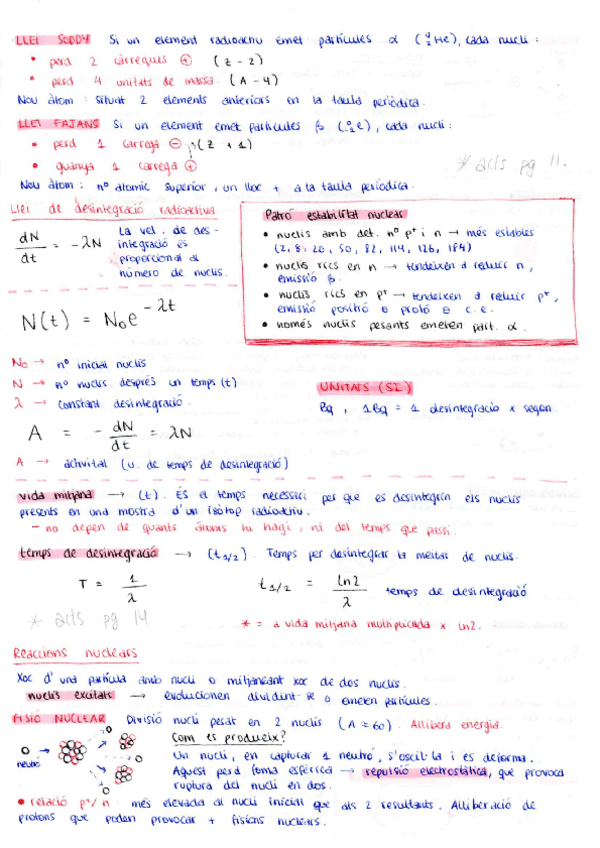 LLEI SODDY Si un element radioactiu emet partícules α (⁴₂He), cada nucli:
• perd 2 càrregues ⊕ (Z - 2)
• perd 4 unitats de massa. (A - 4)
Nou àtom: situat 2 elements anteriors en la taula periòdica.
LLEI FAJANS Si un element emet partícules β (⁰₋₁e), cada nucli:
• perd 1 càrrega ⊖ (Z + 1)
• guanya 1 càrrega ⊕
* acts pg 11.
Nou àtom: nº atòmic superior, un lloc + a la taula periòdica.
Llei de desintegració radioactiva
dN/dt = -λN
La vel. de des-
integració és
proporcional al
número de nuclis.
N(t) = N₀e^-λt
Patró estabilitat nuclear
• nuclis amb det. nº p⁺ i n → més estables
(2, 8, 20, 50, 82, 114, 126, 184)
• nuclis rics en n → tendeixen a reduir n,
emissió β.
• nuclis rics en p⁺ → tendeixen a reduir p⁺,
emissió positró o protó o c.e.
• només nuclis pesants emeten part. α.
N₀ → nº inicial nuclis
N → nº nuclis després un temps (t)
λ → constant desintegració.
UNITATS (SI)
Bq, 1Bq = 1 desintegració x segon.
A = - dN/dt = λN
A → activitat (u. de temps de desintegració)
vida mitjana → (t). És el temps necessari per que es desintegrin els nuclis
presents en una mostra d'un isòtop radioactiu.
- no depen de quants àtoms hi hagi, ni del temps que passi.
temps de desintegració → (t1/2). Temps per desintegrar la meitat de nuclis.
T = 1/λ
t1/2 = ln2/λ temps de desintegració
* acts pg 14
* = a vida mitjana multiplicada x ln2.
Reaccions nuclears
Xoc d'una partícula amb nucli o mitjançant xoc de dos nuclis.
nuclis excitats → evolucionen dividint-se o emeten partícules.
FISIÓ NUCLEAR Divisió nucli pesat en 2 nuclis (A ≈ 60). Allibera energia.
Com es produeix?
neutró
Un nucli, en capturar 1 neutró, s'oscil·la i es deforma.
Aquest perd forma esfèrica → repulsió electrostàtica, que provoca
ruptura del nucli en dos.
• relació p⁺/n: més elevada al nucli inicial que als 2 resultants. Alliberació de
protons que poden provocar + fisions nuclears.